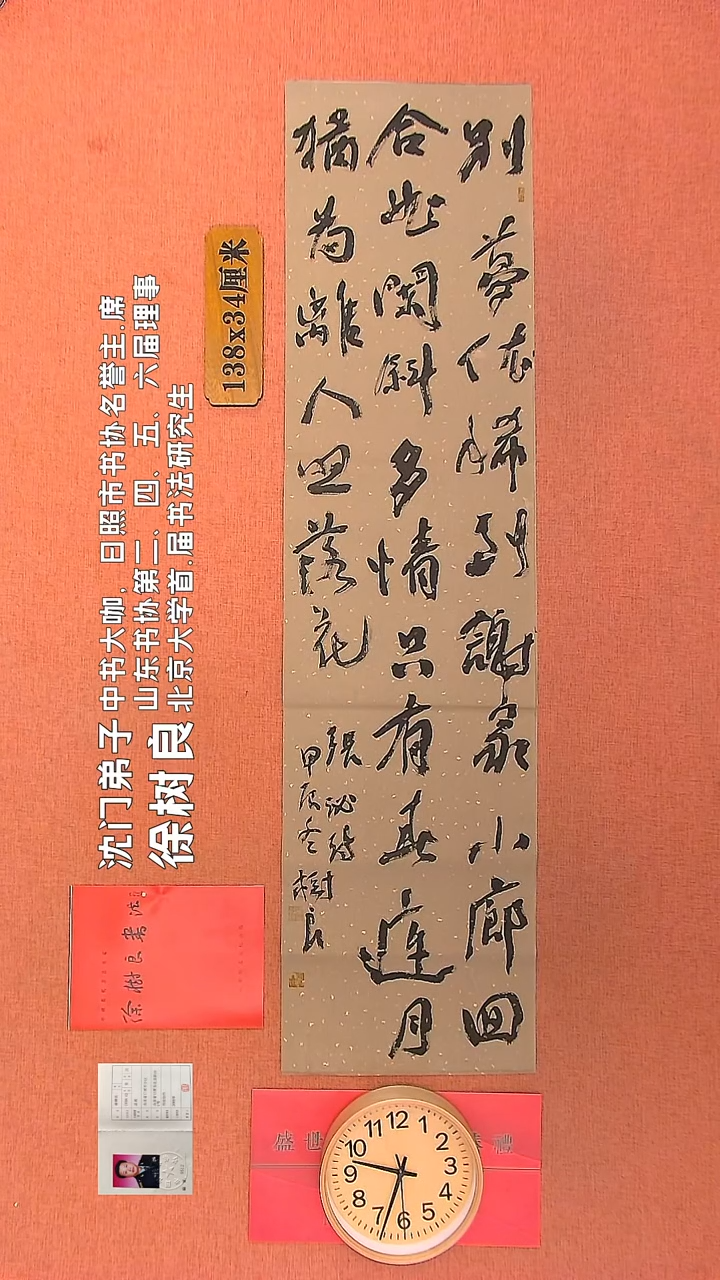 別夢依稀到謝家小廊回
合曲闌斜多情只有春庭月
猶為離人照落花
張泌詩
甲辰冬樹良
138x34厘米
沈门弟子
徐树良
中书大咖，日照市书协名誉主.席
山东书协第二、四、五、六届理事
北京大学首.届书法研究生
徐樹良書法
盛世 禮
12
1
2
3
4
5
6
7
8
9
10
11